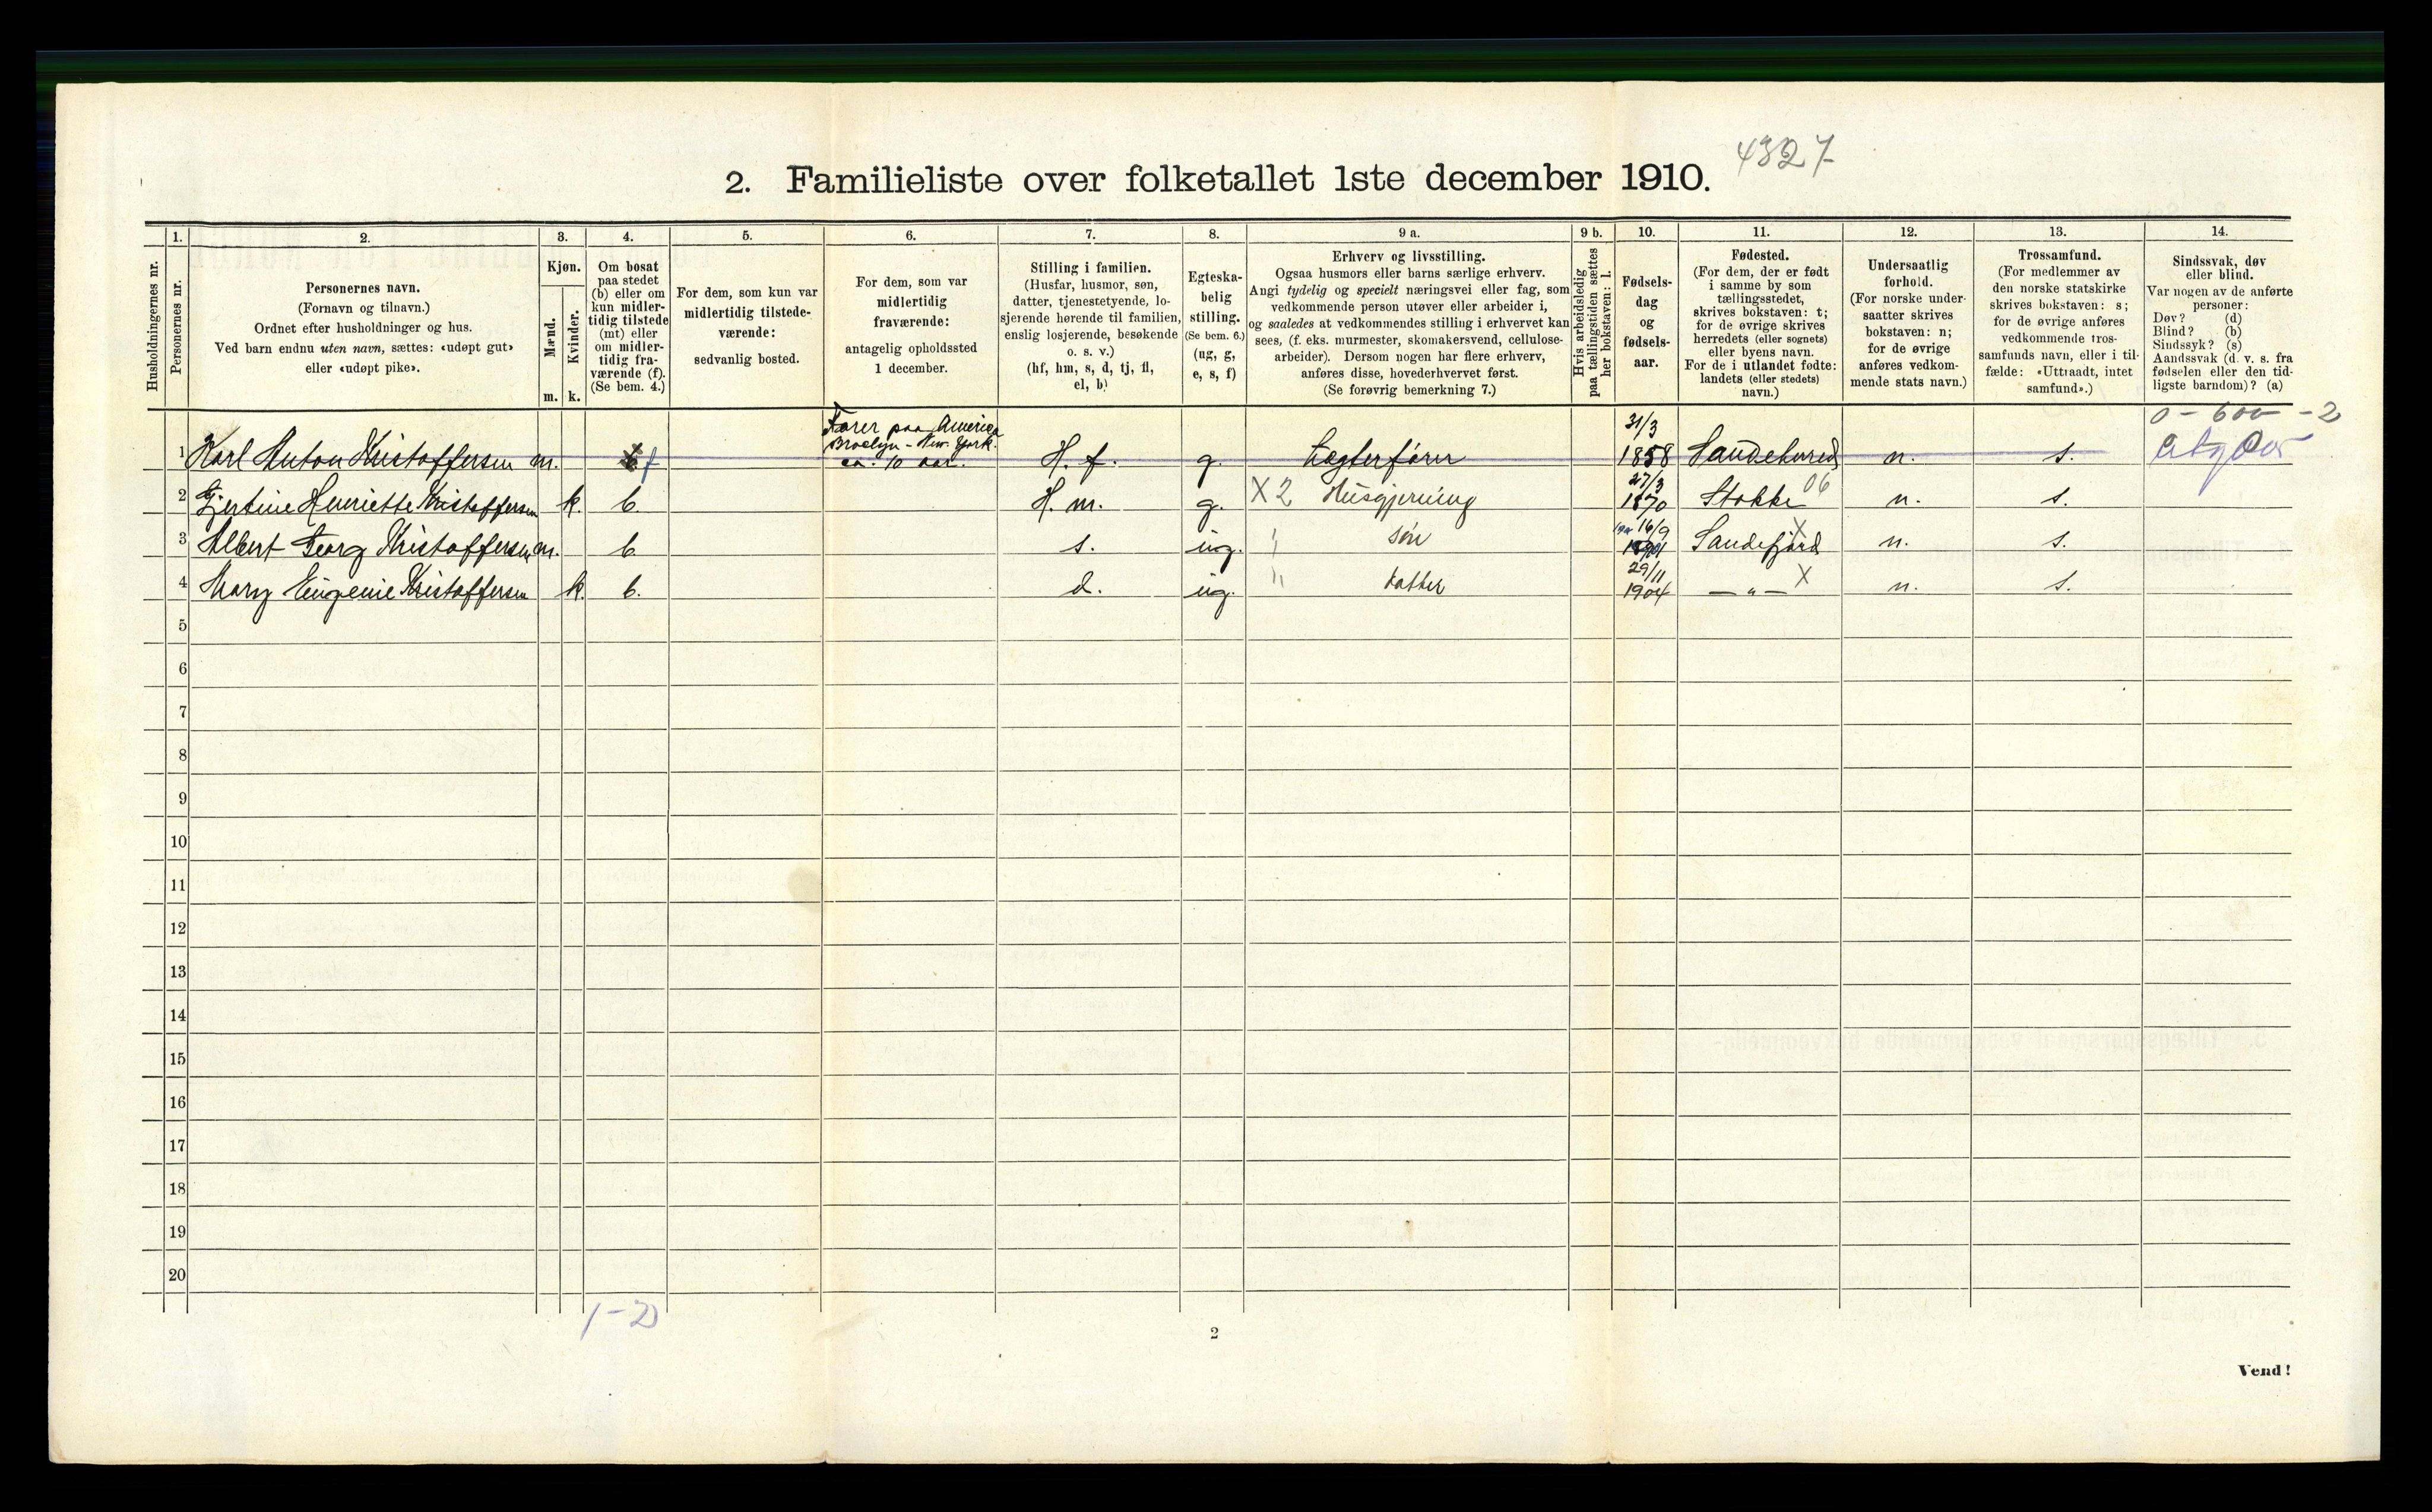 4327
2. Familieliste over folketallet 1ste december 1910.
Husholdningernes nr.
1.
Personernes nr.
2.
Personernes navn.
(Fornavn og tilnavn.)
Ordnet efter husholdninger og hus.
Ved barn endnu uten navn, sættes: «udøpt gut»
eller «udøpt pike».
3.
Kjøn.
Mænd.
Kvinder.
m. k.
4.
Om bosat
paa stedet
(b) eller om
kun midler-
tidig tilstede
(mt) eller
om midler-
tidig fra-
værende (f).
(Se bem. 4.)
5.
For dem, som kun var
midlertidig tilstede-
værende:
sedvanlig bosted.
6.
For dem, som var
midlertidig
fraværende:
antagelig opholdssted
1 december.
7.
Stilling i familien.
(Husfar, husmor, søn,
datter, tjenestetyende, lo-
sjerende hørende til familien,
enslig losjerende, besøkende
o. s. v.)
(hf, hm, s, d, tj, fl,
el, b)
8.
Egteska-
belig
stilling.
(Se bem. 6.)
(ug, g,
e, s, f)
9 a.
Erhverv og livsstilling.
Ogsaa husmors eller barns særlige erhverv.
Angi tydelig og specielt næringsvei eller fag, som
vedkommende person utøver eller arbeider i,
og saaledes at vedkommendes stilling i erhvervet kan
sees, (f. eks. murmester, skomakersvend, cellulose-
arbeider). Dersom nogen har flere erhverv,
anføres disse, hovederhvervet først.
(Se forøvrig bemerkning 7.)
9 b.
Hvis arbeidsledig
paa tællingstiden sættes
her bokstaven: l.
10.
Fødsels-
dag
og
fødsels-
aar.
11.
Fødested.
(For dem, der er født
i samme by som
tællingsstedet,
skrives bokstaven: t;
for de øvrige skrives
herredets (eller sognets)
eller byens navn.
For de i utlandet fødte:
landets (eller stedets)
navn.)
12.
Undersaatlig
forhold.
(For norske under-
saatter skrives
bokstaven: n;
for de øvrige
anføres vedkom-
mende stats navn.)
13.
Trossamfund.
(For medlemmer av
den norske statskirke
skrives bokstaven: s;
for de øvrige anføres
vedkommende tros-
samfunds navn, eller i til-
fælde: «Uttraadt, intet
samfund».)
14.
Sindssvak, døv
eller blind.
Var nogen av de anførte
personer:
Døv? (d)
Blind? (b)
Sindssyk? (s)
Aandssvak (d. v. s. fra
fødselen eller den tid-
ligste barndom)? (a)
0 - 600 - 2
1 Karl Anton Kristoffersen m. f Farer paa America Broclyn - New. York. ca. 10 aar. H. f. g. Lægterfører 31/3 1858 Sandeherred n. s.
2 Gjertine Henriette Kristoffersen k. b. H. m. g. X 2 Husgjerning 27/3 1870 Stokke 06 n. s.
3 Albert Georg Kristoffersen m. b. s. ug. søn 16/9 Sandefjord X n. s.
4 Mary Eugenie Kristoffersen k. b. d. ug. datter 29/11 1904 — „ — X n. s.
5
6
7
8
9
10
11
12
13
14
15
16
17
18
19
20
1 - 2
2
Vend!